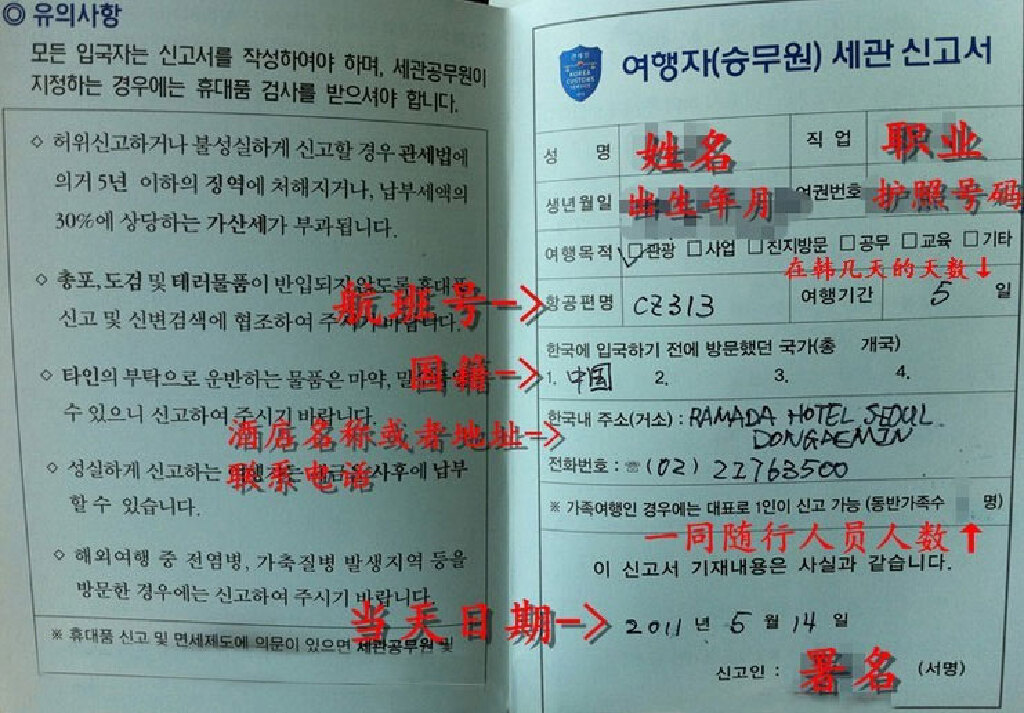 ◎ 유의사항
모든 입국자는 신고서를 작성하여야 하며, 세관공무원이
지정하는 경우에는 휴대품 검사를 받으셔야 합니다.
◇ 허위신고하거나 불성실하게 신고할 경우 관세법에
의거 5년 이하의 징역에 처해지거나, 납부세액의
30%에 상당하는 가산세가 부과됩니다.
◇ 총포, 도검 및 테러물품이 반입되지 않도록 휴대품
신고 및 신변검색에 협조하여 주시기 바랍니다.
◇ 타인의 부탁으로 운반하는 물품은 마약,
수 있으니 신고하여 주시기 바랍니다.
◇ 성실하게 신고하는 사후에 납부
할 수 있습니다.
◇ 해외여행 중 전염병, 가축질병 발생지역 등을
방문한 경우에는 신고하여 주시기 바랍니다.
※ 휴대품 신고 및 면세제도에 의문이 있으면 세관공무원 및
航班号->
国籍->
酒店名称或者地址->
联系电话
当天日期->
KOREA CUSTOMS
여행자(승무원) 세관 신고서
성 명 姓名 직 업 职业
생년월일 出生年月 여권번호 护照号码
여행목적 ✓□관광 □사업 □친지방문 □공무 □교육 □기타
在韩几天的天数↓
항공편명 CZ313 여행기간 5 일
한국에 입국하기 전에 방문했던 국가(총 개국)
1. 中国 2. 3. 4.
한국내 주소(거소) : RAMADA HOTEL SEOUL
DONGDAEMIN
전화번호 : ☏ (02) 22763500
※ 가족여행인 경우에는 대표로 1인이 신고 가능 (동반가족수 명)
一同随行人员人数↑
이 신고서 기재내용은 사실과 같습니다.
2011 년 5 월 14 일
신고인 : 署名 (서명)